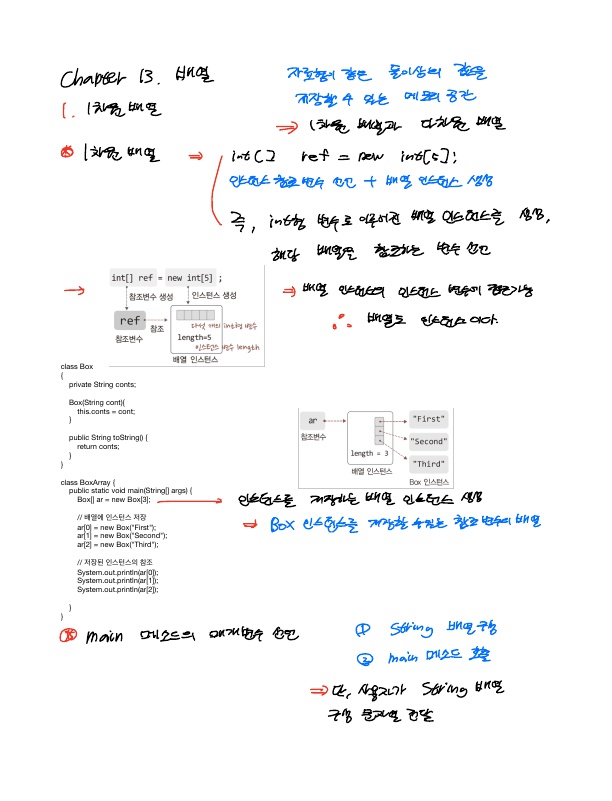 Chapter 13. 배열
자료형이 같은 둘이상의 값을
저장할 수 있는 메모리 공간
1. 1차원 배열
⇒ 1차원 배열과 다차원 배열
1차원 배열 ⇒ int[] ref = new int[5];
인스턴스 참조변수 선언 + 배열 인스턴스 생성
즉, int형 변수로 이루어진 배열 인스턴스를 생성,
해당 배열을 참조하는 변수 선언
int[] ref = new int[5] ;
참조변수 생성 인스턴스 생성
ref 참조
참조변수
다섯 개의 int형 변수
length=5
인스턴스 변수 length
배열 인스턴스
⇒ 배열 인스턴스의 인스턴스 변수에 접근가능
∴ 배열도 인스턴스이다.
class Box
{
private String conts;
Box(String cont){
this.conts = cont;
}
public String toString() {
return conts;
}
}
ar
참조변수
length = 3
배열 인스턴스
"First"
"Second"
"Third"
Box 인스턴스
class BoxArray {
public static void main(String[] args) {
Box[] ar = new Box[3];
인스턴스를 저장하는 배열 인스턴스 생성
⇒ Box 인스턴스를 저장할 수 있는 참조변수의 배열
// 배열에 인스턴스 저장
ar[0] = new Box("First");
ar[1] = new Box("Second");
ar[2] = new Box("Third");
// 저장된 인스턴스의 참조
System.out.println(ar[0]);
System.out.println(ar[1]);
System.out.println(ar[2]);
}
}
main 메소드의 매개변수 선언
① String 배열 구성
② main 메소드 호출
⇒ 단, 사용자가 String 배열
구성 문자열 전달